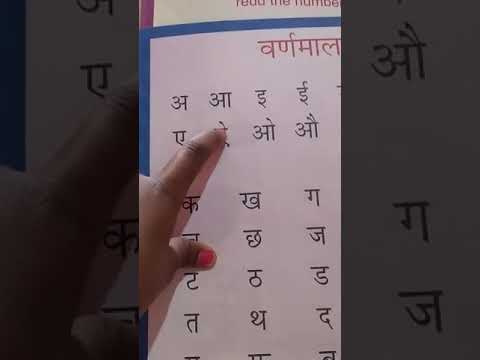 read the number
वर्णमाल
अ आ इ ई
ए ऐ ओ औ
क ख ग
च छ ज
ट ठ ड
त थ द